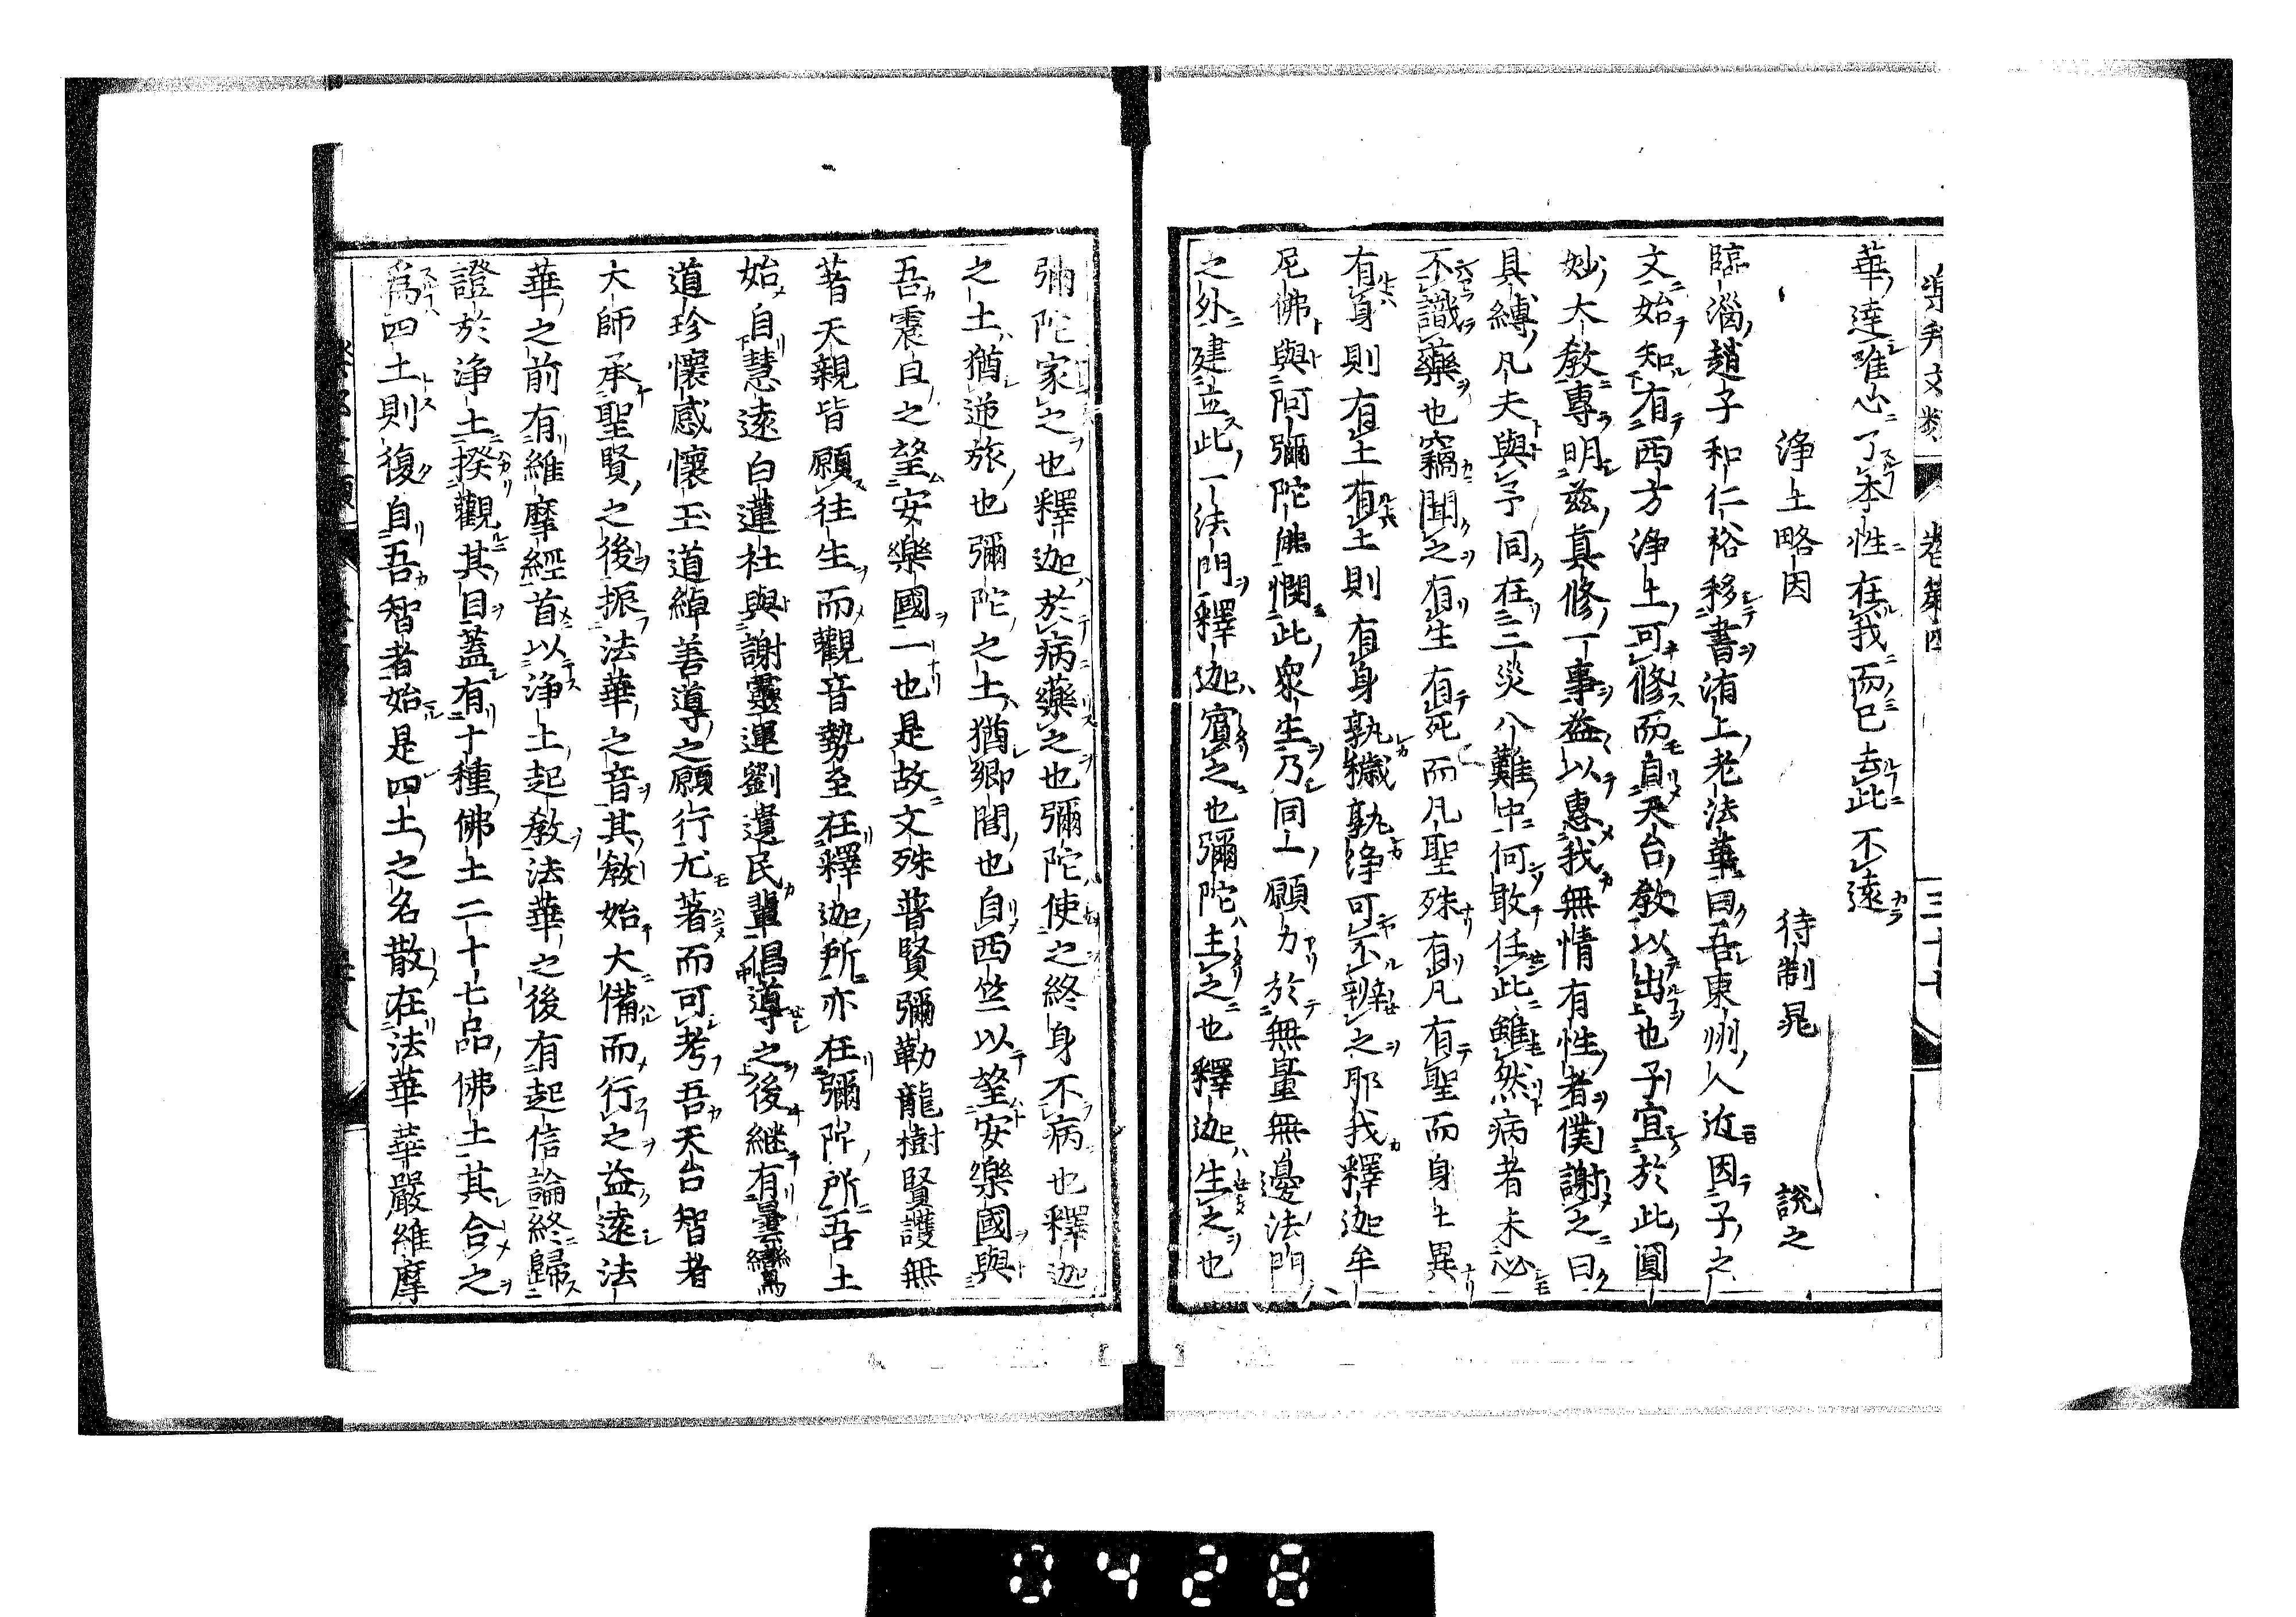 樂邦文類 卷第四 三十七
華達唯心了本性在我而已去此不遠
淨土略因 待制晁 說之
臨淄趙子和仁裕移書洧上老法華曰吾東州人近因子之
文始知有西方淨土可修而自天台教以出也子宜於此圓
妙大教專明茲真修一事益以惠我無情有性者僕謝之曰
具縛凡夫與予同在三災八難中何敢任此雖然病者未必
不識藥也竊聞之有生有死而凡聖殊有凡有聖而身土異
有身則有土有土則有身孰穢孰淨可不辨之耶我釋迦牟
尼佛與阿彌陀佛憫此衆生乃同上願力於無量無邊法門
之外建立此一法門釋迦賓之也彌陀主之也釋迦生之也
彌陀家之也釋迦於病藥之也彌陀使之終身不病也釋迦
之土猶逆旅也彌陀之土猶鄉閭也自西竺以望安樂國與
吾震旦之望安樂國一也是故文殊普賢彌勒龍樹賢護無
著天親皆願往生而觀音勢至在釋迦所亦在彌陀所吾土
始自慧遠白蓮社與謝靈運劉遺民輩倡導之後繼有曇鸞
道珍懷感懷玉道綽善導之願行尤著而可考吾天台智者
大師承聖賢之後振法華之音其教始大備而行之益遠法
華之前有維摩經首以淨土起教法華之後有起信論終歸
證於淨土揆觀其目蓋有十種佛土二十七品佛土其合之
爲四土則復自吾智者始是四土之名散在法華華嚴維摩
0428